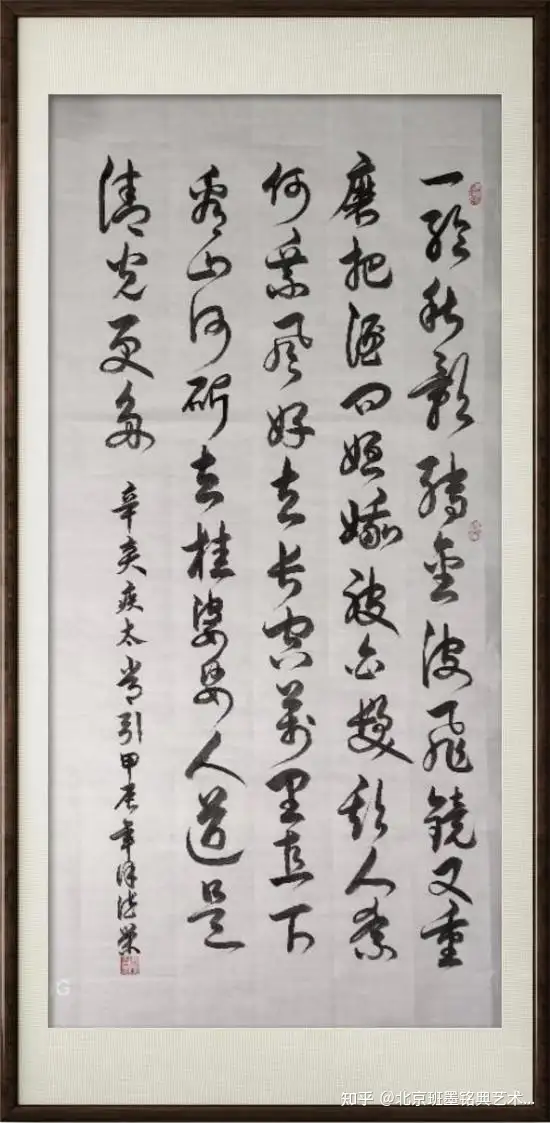 一輪秋影轉金波飛鏡又重
磨把酒问姮娥被白髮欺人奈
何乘風好去长空萬里直下
看山河斫去桂婆娑人道是
清光更多
辛弃疾太常引甲辰年
G
知乎 @北京班墨铭典艺术...